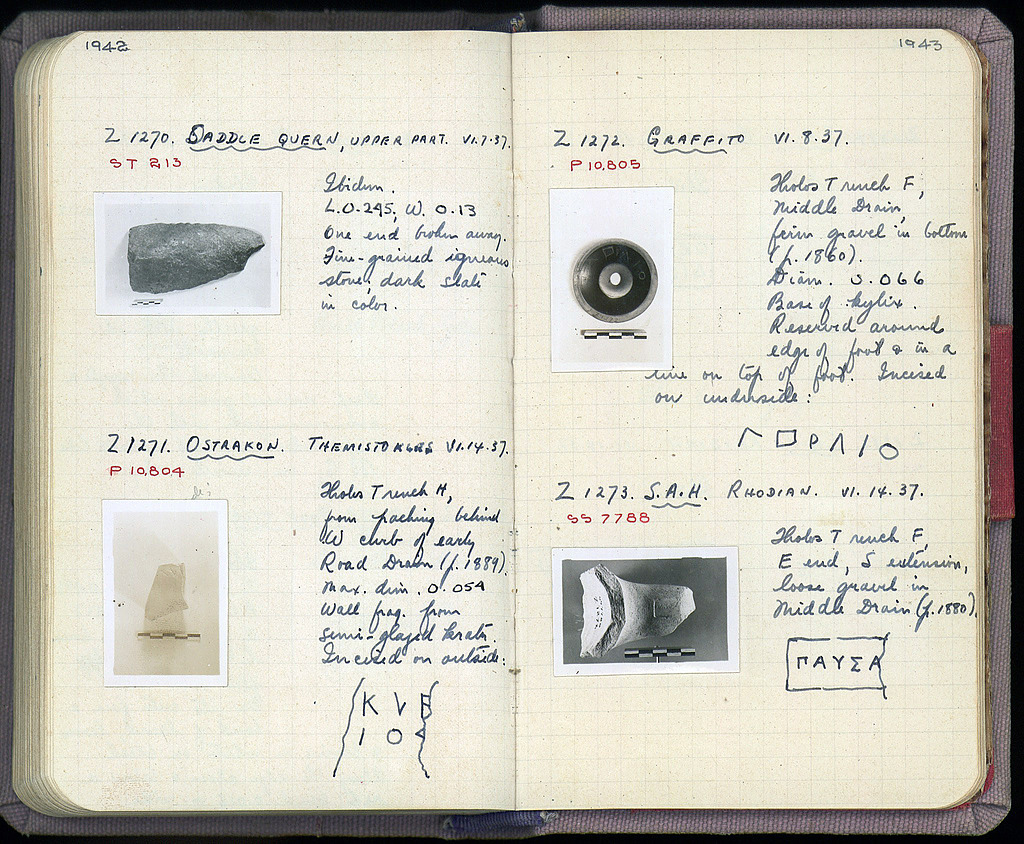 1942
Z 1270. SADDLE QUERN, UPPER PART. VI.7.37.
ST 213
Ibidem.
L. 0.245, W. 0.13
One end broken away.
Fine-grained igneous
stone, dark slate
in color.
Z 1271. OSTRAKON. THEMISTOKLES VI.14.37.
P 10,804
Tholos Trench H,
from packing behind
W curb of early
Road Drain (p. 1889).
Max. dim. 0.054
Wall frag. from
semi-glazed krater.
Incised on outside:
K V E
I O
1943
Z 1272. GRAFFITO VI.8.37.
P 10,805
Tholos Trench F,
Middle Drain,
firm gravel in bottom
(p. 1860).
Diam. 0.066
Base of kylix.
Reserved around
edge of foot & in a
line on top of foot. Incised
on underside:
Z 1273. S.A.H. RHODIAN. VI.14.37.
SS 7788
Tholos Trench F,
E end, S extension,
loose gravel in
Middle Drain (p. 1880).
ΠΑΥΣΑ